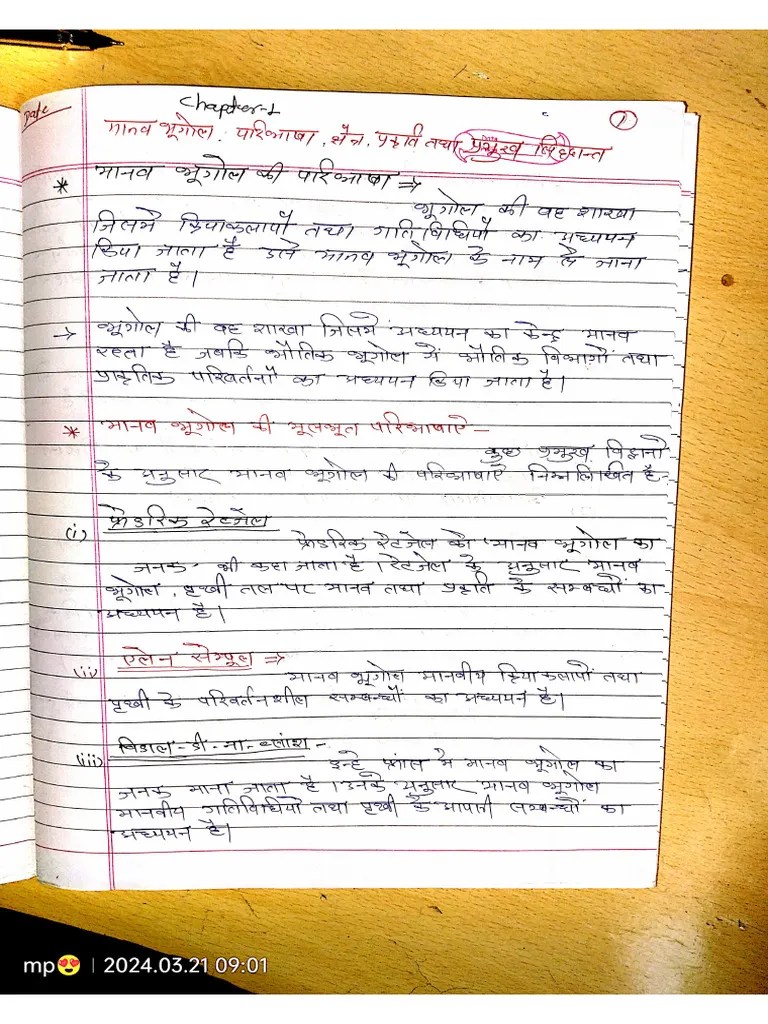 Date
Chapter-1
1
मानव भूगोल : परिभाषा, क्षेत्र, प्रकृति तथा प्रमुख सिद्धान्त
* मानव भूगोल की परिभाषा ⇒
भूगोल की वह शाखा
जिसमें क्रियाकलापों तथा गतिविधियों का अध्ययन
किया जाता है उसे मानव भूगोल के नाम से जाना
जाता है।
→ भूगोल की वह शाखा जिसमें अध्ययन का केन्द्र मानव
रहता है जबकि भौतिक भूगोल में भौतिक विभागों तथा
प्राकृतिक परिवर्तनों का अध्ययन किया जाता है।
* मानव भूगोल की मूलभूत परिभाषाएँ –
कुछ प्रमुख विद्वानो
के अनुसार मानव भूगोल की परिभाषाएँ निम्नलिखित है-
(i) फ्रेडरिक रेटजेल
फ्रेडरिक रैटजेल को 'मानव भूगोल का
जनक' भी कहा जाता है। रेटजेल के अनुसार मानव
भूगोल, पृथ्वी तल पर मानव तथा प्रकृति के सम्बन्धों का
अध्ययन है।
(ii) ऐलेन सेम्पूल ⇒
मानव भूगोल मानवीय क्रियाकलापों तथा
पृथ्वी के परिवर्तनशील सम्बन्धों का अध्ययन है।
(iii) विडाल-डी-ला-ब्लांश -
उन्हे फ्रांस मे मानव भूगोल का
जनक माना जाता है। उनके अनुसार मानव भूगोल
मानवीय गतिविधियों तथा पृथ्वी के आपसी सम्बन्धों का
अध्ययन है।
mp😍 | 2024.03.21 09:01